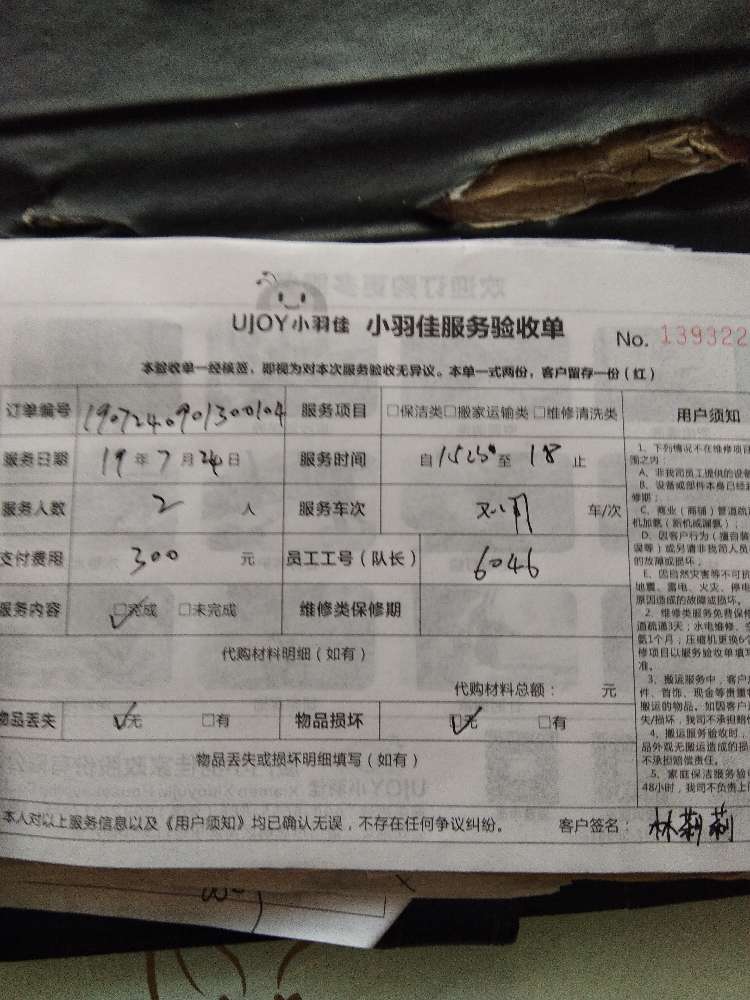 UJOY小羽佳 小羽佳服务验收单 No. 139322
本验收单一经核签，即视为对本次服务验收无异议。本单一式两份，客户留存一份（红）
订单编号 1907240901300104 服务项目 □保洁类□搬家运输类□维修清洗类 用户须知
服务日期 19年7月24日 服务时间 自 至 18 止
服务人数 2 人 服务车次 车/次
支付费用 300 元 员工工号（队长） 6046
服务内容 ☑完成 □未完成 维修类保修期
代购材料明细（如有）
代购材料总额： 元
物品丢失 ☑无 □有 物品损坏 ☑无 □有
物品丢失或损坏明细填写（如有）
本人对以上服务信息以及《用户须知》均已确认无误，不存在任何争议纠纷。 客户签名：林莉莉
1、下列情况不在维修项目
围之内：
A、非我司员工提供的设备
B、设备或部件本身已经
修期；
C、商业（商铺）管道疏
机加氨（新机或漏氨）；
D、因客户行为（擅自装
误等）或另请非我司人员
的故障或损坏；
E、因自然灾害等不可抗
地震、雷电、火灾、停电
原因造成的故障或损坏。
2、维修类服务免费保修
道疏通3天；水电维修、
氨1个月；压缩机更换6个
修项目以服务验收单填写
准。
3、搬运服务中，客户
件、首饰、现金等贵重
搬运的物品。如因客户
失/损坏，我司不承担赔
4、搬运服务验收时，
品外观无搬运造成的损
不承担赔偿责任。
5、家庭保洁服务验
48小时，我司不负责上